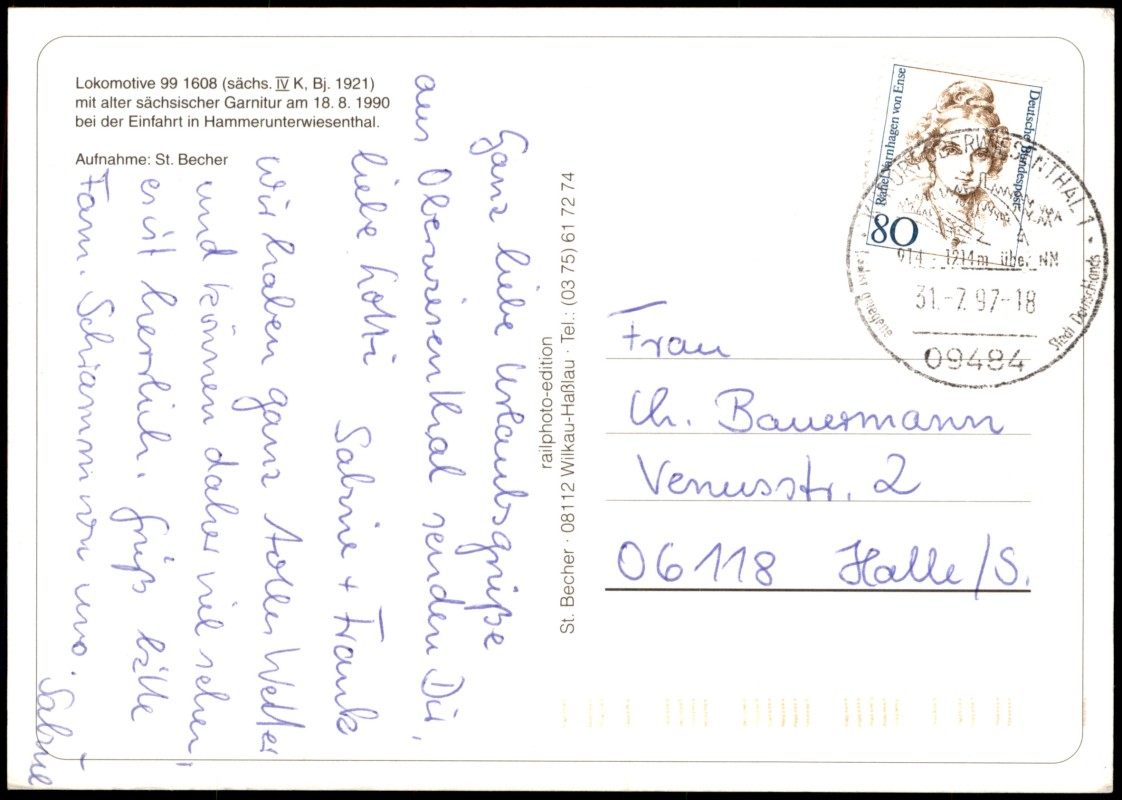 Lokomotive 99 1608 (sächs. IV K, Bj. 1921)
mit alter sächsischer Garnitur am 18. 8. 1990
bei der Einfahrt in Hammerunterwiesenthal.
Aufnahme: St. Becher
Ganz liebe Urlaubsgrüße
aus Oberwiesenthal senden Dir,
liebe Lotti Sabine + Frank
Wir haben ganz tolles Wetter
und können daher viel sehen,
es ist herrlich. Grüß bitte
Fam. von uns.
Sabine
railphoto-edition
St. Becher · 08112 Wilkau-Haßlau · Tel.: (03 75) 61 72 74
Deutsche Bundespost
Rahel Varnhagen von Ense
80
KURORT OBERWIESENTHAL 1
914 - 1214m über NN
31.-7.97-18
09484
höchst gelegene Stadt Deutschlands
Frau
Ch. Bauermann
Venusstr. 2
06118 Halle/S.